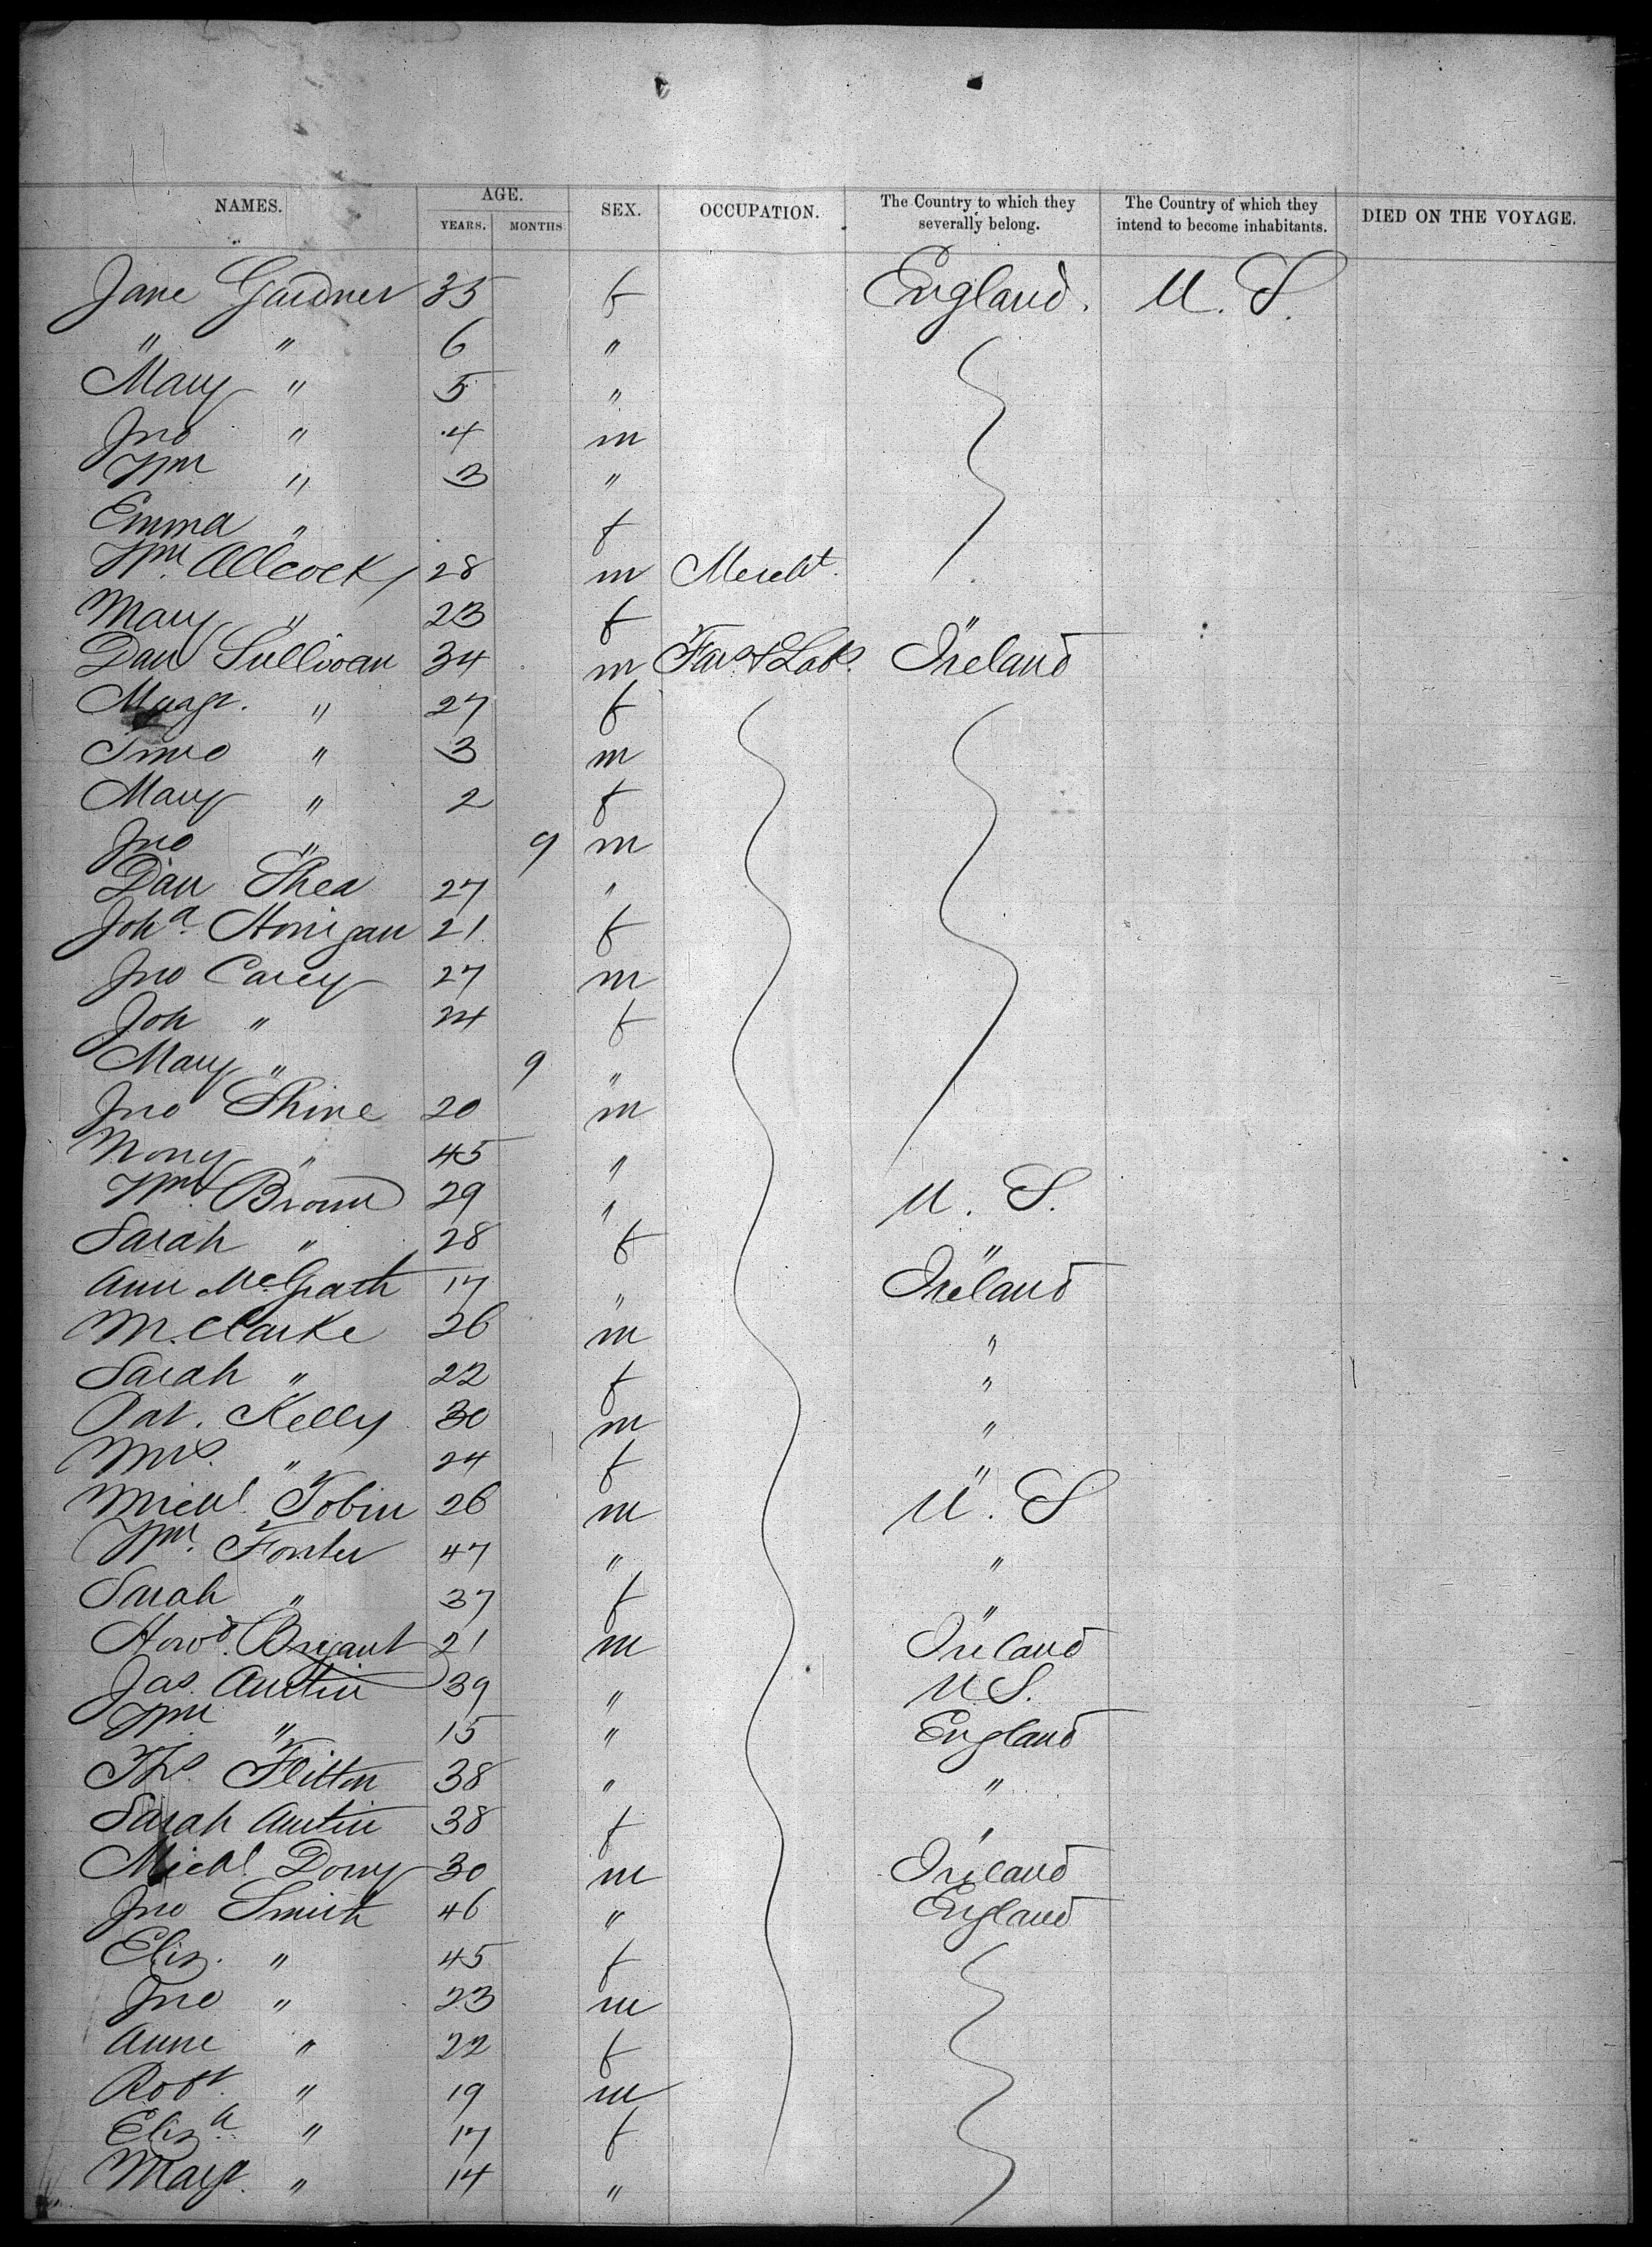 NAMES. AGE. YEARS. MONTHS SEX. OCCUPATION. The Country to which they severally belong. The Country of which they intend to become inhabitants. DIED ON THE VOYAGE.
Jane Gardner 35 f England. U. S.
" " 6 "
Mary " 5 "
Jno " 4 m
Wm " 3 "
Emma " f
Wm. Allcock 28 m Mercht.
Mary " 23 f "
Dan Sullivan 34 m Far & Labs. Ireland
Margt. " 27 f
Timo " 3 m
Mary " 2 f
Jno " 9 m
Dan Shea 27 "
Joha. Honigan 21 f
Jno Carey 27 m
Joh " 24 f
Mary " 9 "
Jno Shine 20 m
" 45 "
Wm. Brown 29 " U. S.
Sarah " 28 f "
Ann McGrath 17 " Ireland
M. Clarke 26 m "
Sarah " 22 f "
Pat. Kelly 30 m "
Mrs. " 24 f "
Michl. Tobin 26 m U. S
Wm. Forster 47 " "
Sarah " 37 f "
Howd. Bryant 21 m Ireland
Jas. Austin 39 " U.S.
Wm " 15 " England
Ths. Flitton 38 " "
Sarah Austin 38 f "
Michl. 30 m Ireland
Jno Smith 46 " England
Eliz. " 45 f
Jno " 23 m
Anne " 22 f
Robt. " 19 m
Elizh. " 17 f
Margt. " 14 "